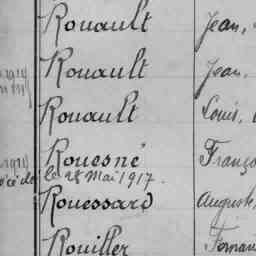 Rouault Jean,
Rouault Jean.
Rouault Louis,
Rouesné
le 28 Mai 1917.
Rouessard Auguste,
Rouiller